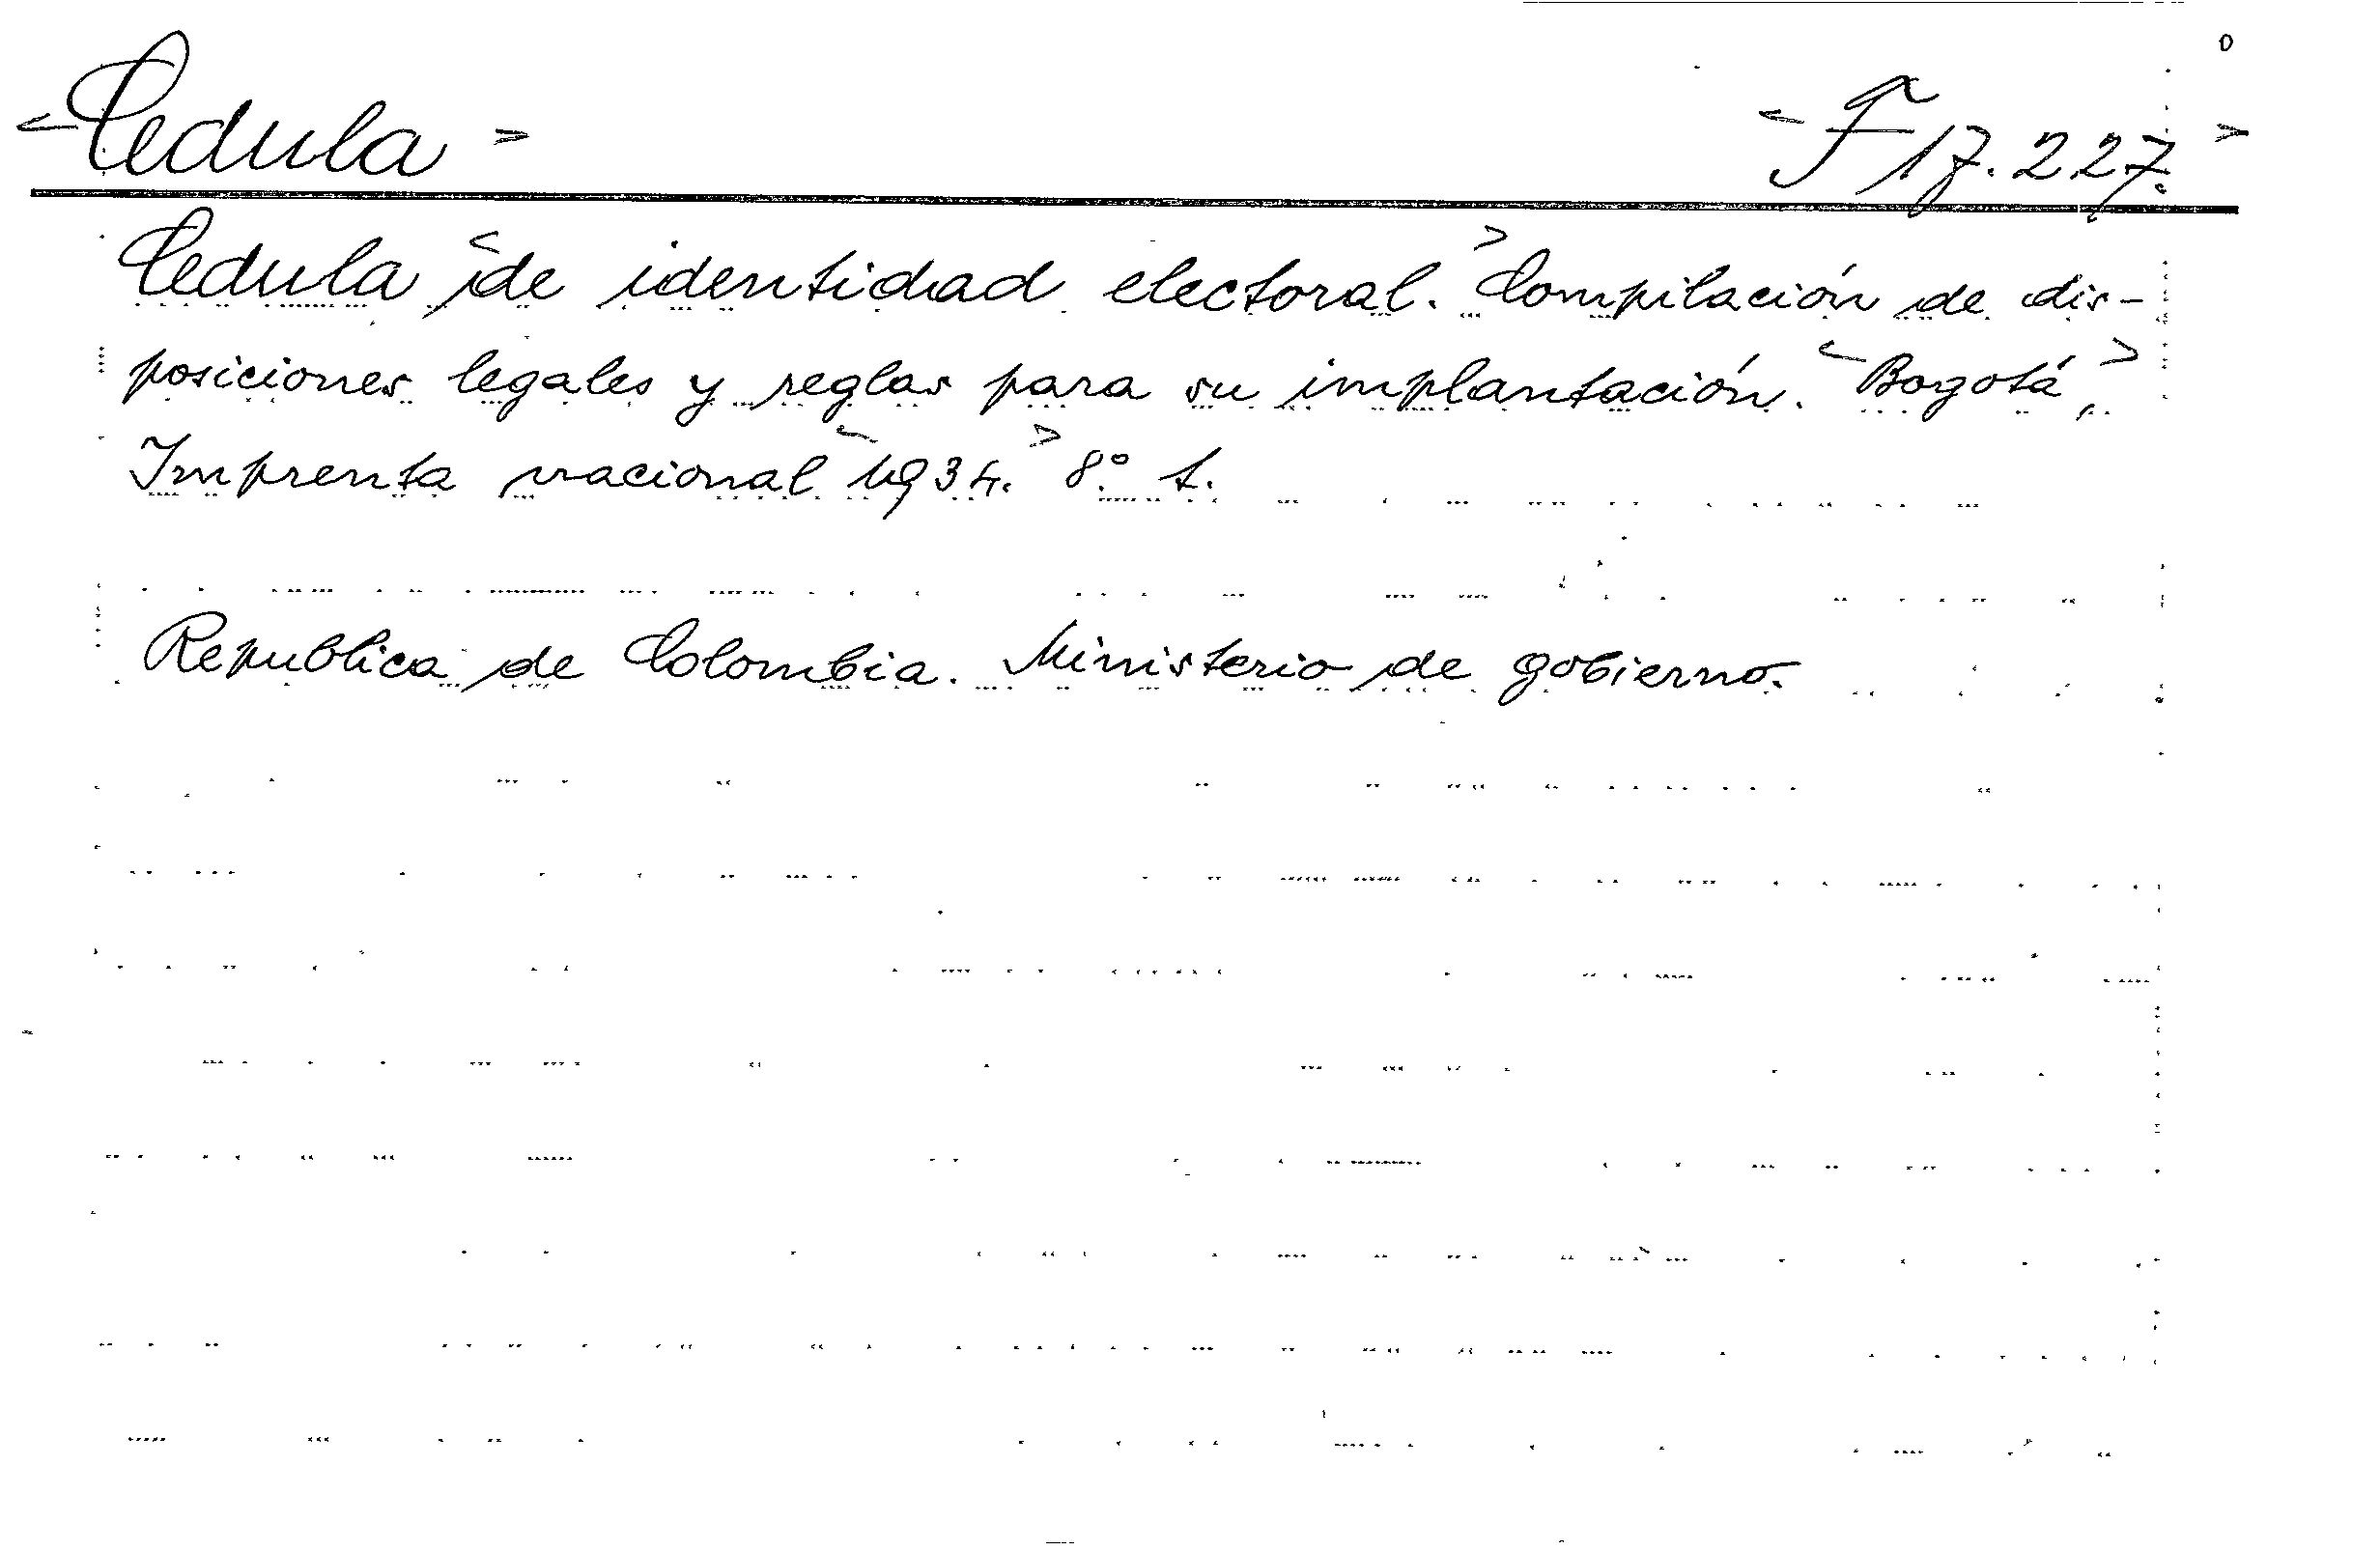 <Cedula> <F 17.227.>
Cedula <de identidad electoral.> Compilación de dis-
posiciones legales y reglas para su implantación. <Bogotá,>
Imprenta nacional <1934.> 8.º t.
Republica de Colombia. Ministerio de gobierno.